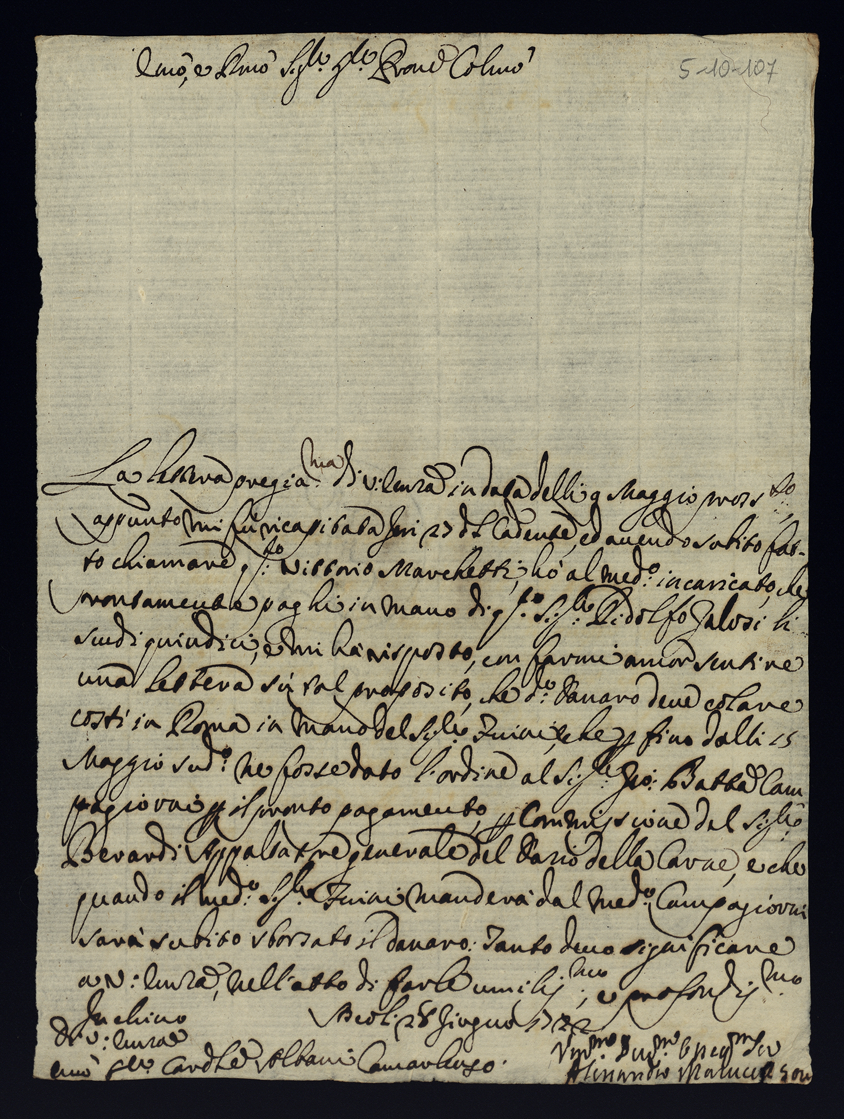 Emo, e Rmo Sigre Sigre Prone Colmo
5-10-107
La lettera pregiama di V: Emza in data delli 9 Maggio pross:to
appunto mi fù ricapitata Jeri 27 del Cadente, ed avendo subito fat-
to chiamare qto Vittorio Marchetti, hò al medo: incaricato, che
prontamente paghi in mano di qto Sigre Ridolfo Jalosi li
scudi quindici, e mi hà risposto, con farmi ancor sentire
una lettera sù tal proposito, che do: danaro deve colare
costì in Roma in mano del Sigre Zuini, e che p fino dalli 15
Maggio sudo: ne fosse dato l'ordine al Sigre Gio: Batta Cam
pagiovni p il pronto pagamento, p Commissione del Sigre
Berardi Appaltatore generale del Dazio della Carne, e che
quando il medo: Sigre Zuini manderà dal medo: Campagiovni
sarà subito sborzato il danaro: Tanto devo significare
a V: Emza, nell'atto di farle umiliss:mo, e profondiss:mo
Inchino
Ascoli 28 Giugno 1722
Di V: Emza
Emo Sigre Cardle Albani Camarlengo.
Alessandro